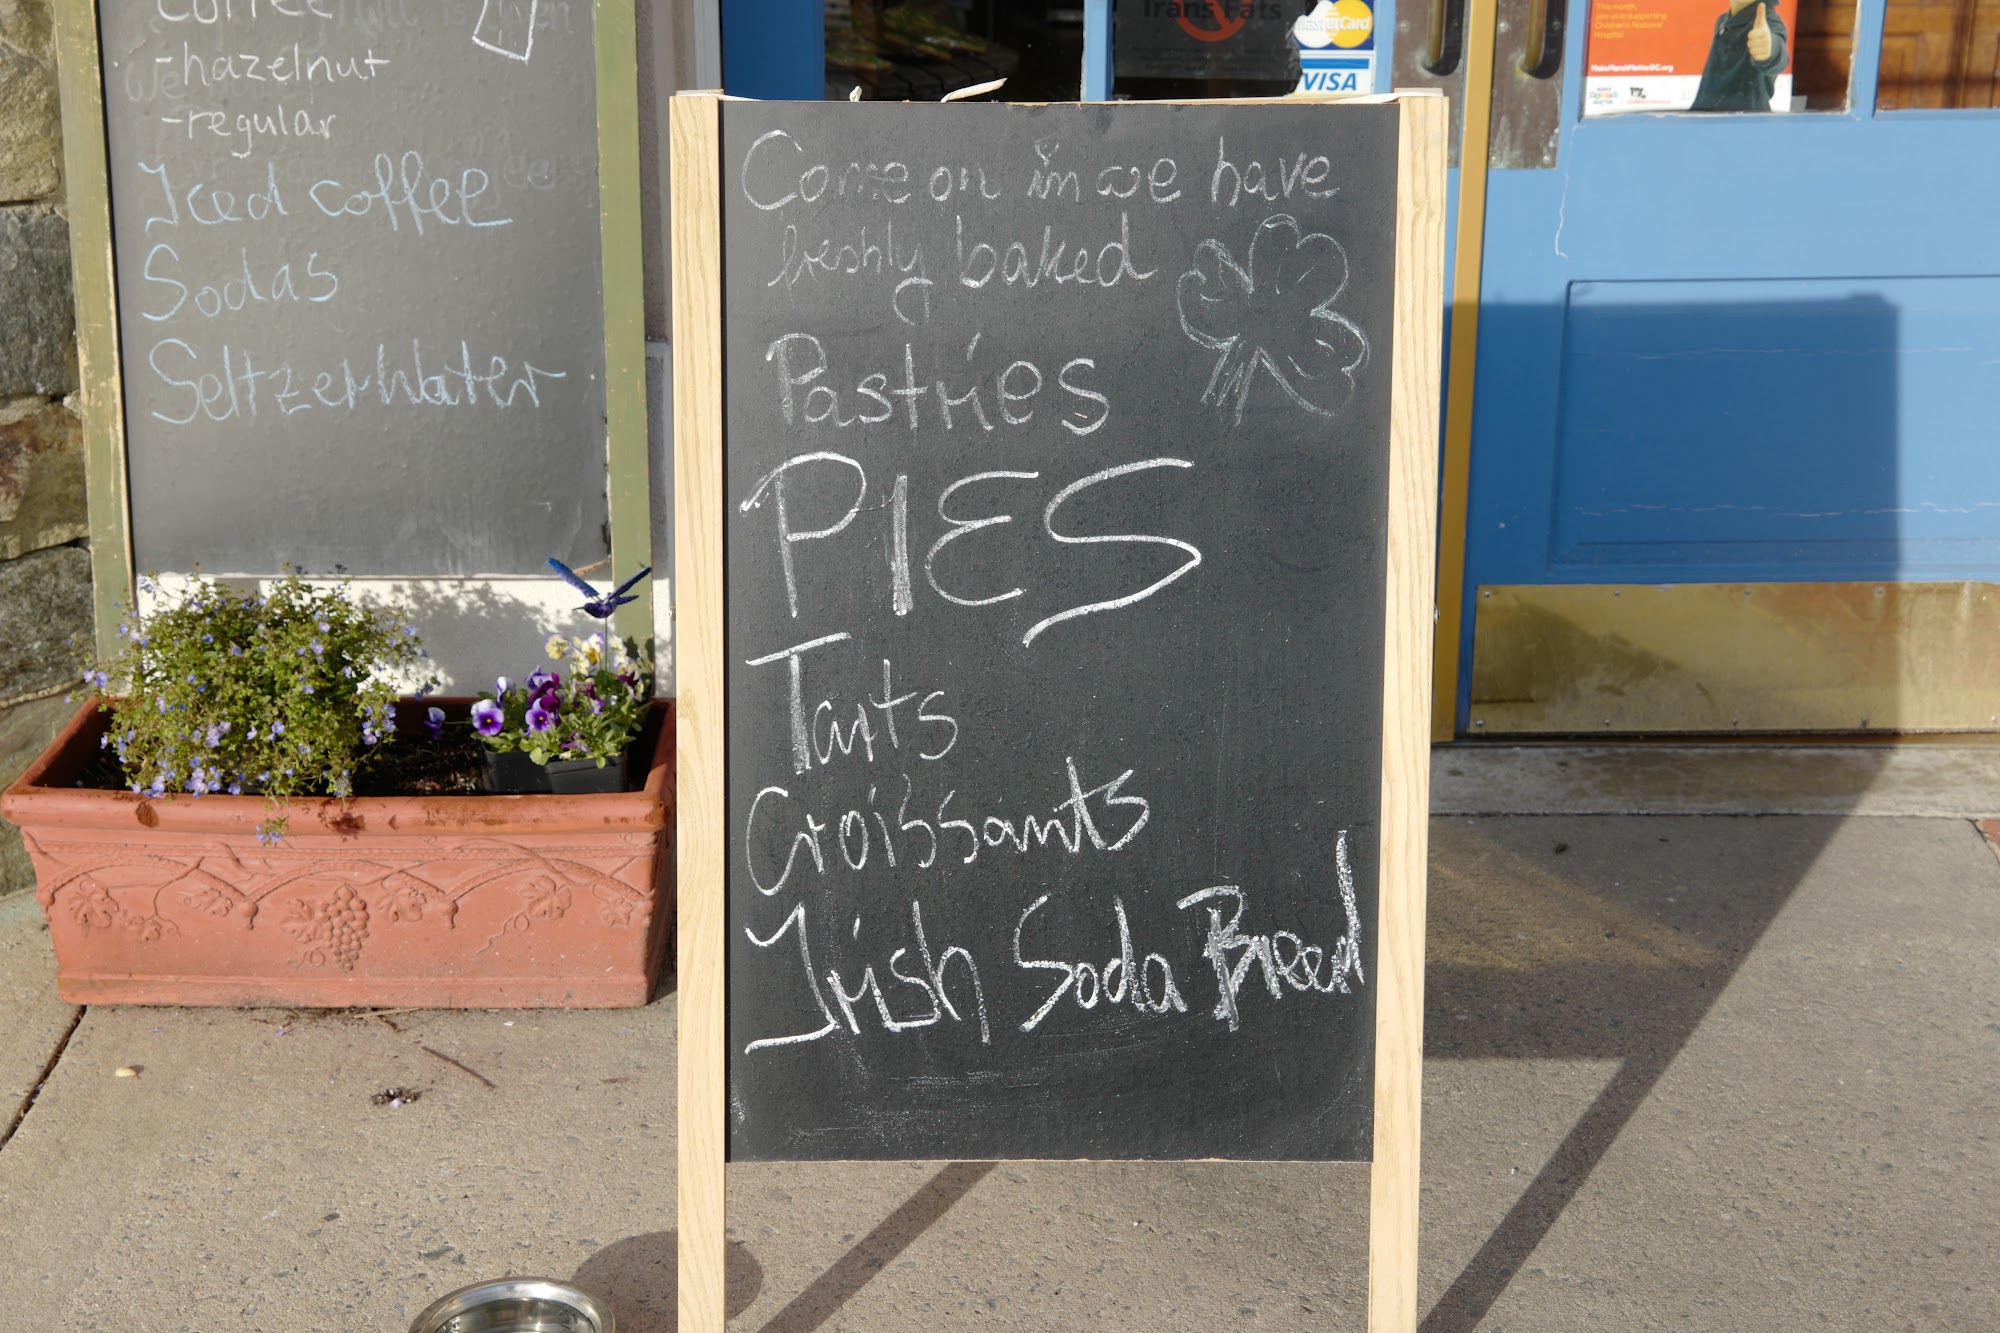 coffee
-hazelnut
-regular
Iced coffee
Sodas
Seltzerwater
Come on in we have
freshly baked
Pastries
PIES
Tarts
Croissants
Irish Soda Bread
Trans Fats
MasterCard
VISA
This month,
join us in supporting
Children's National
Hospital.
MakeMarchMatterDC.org